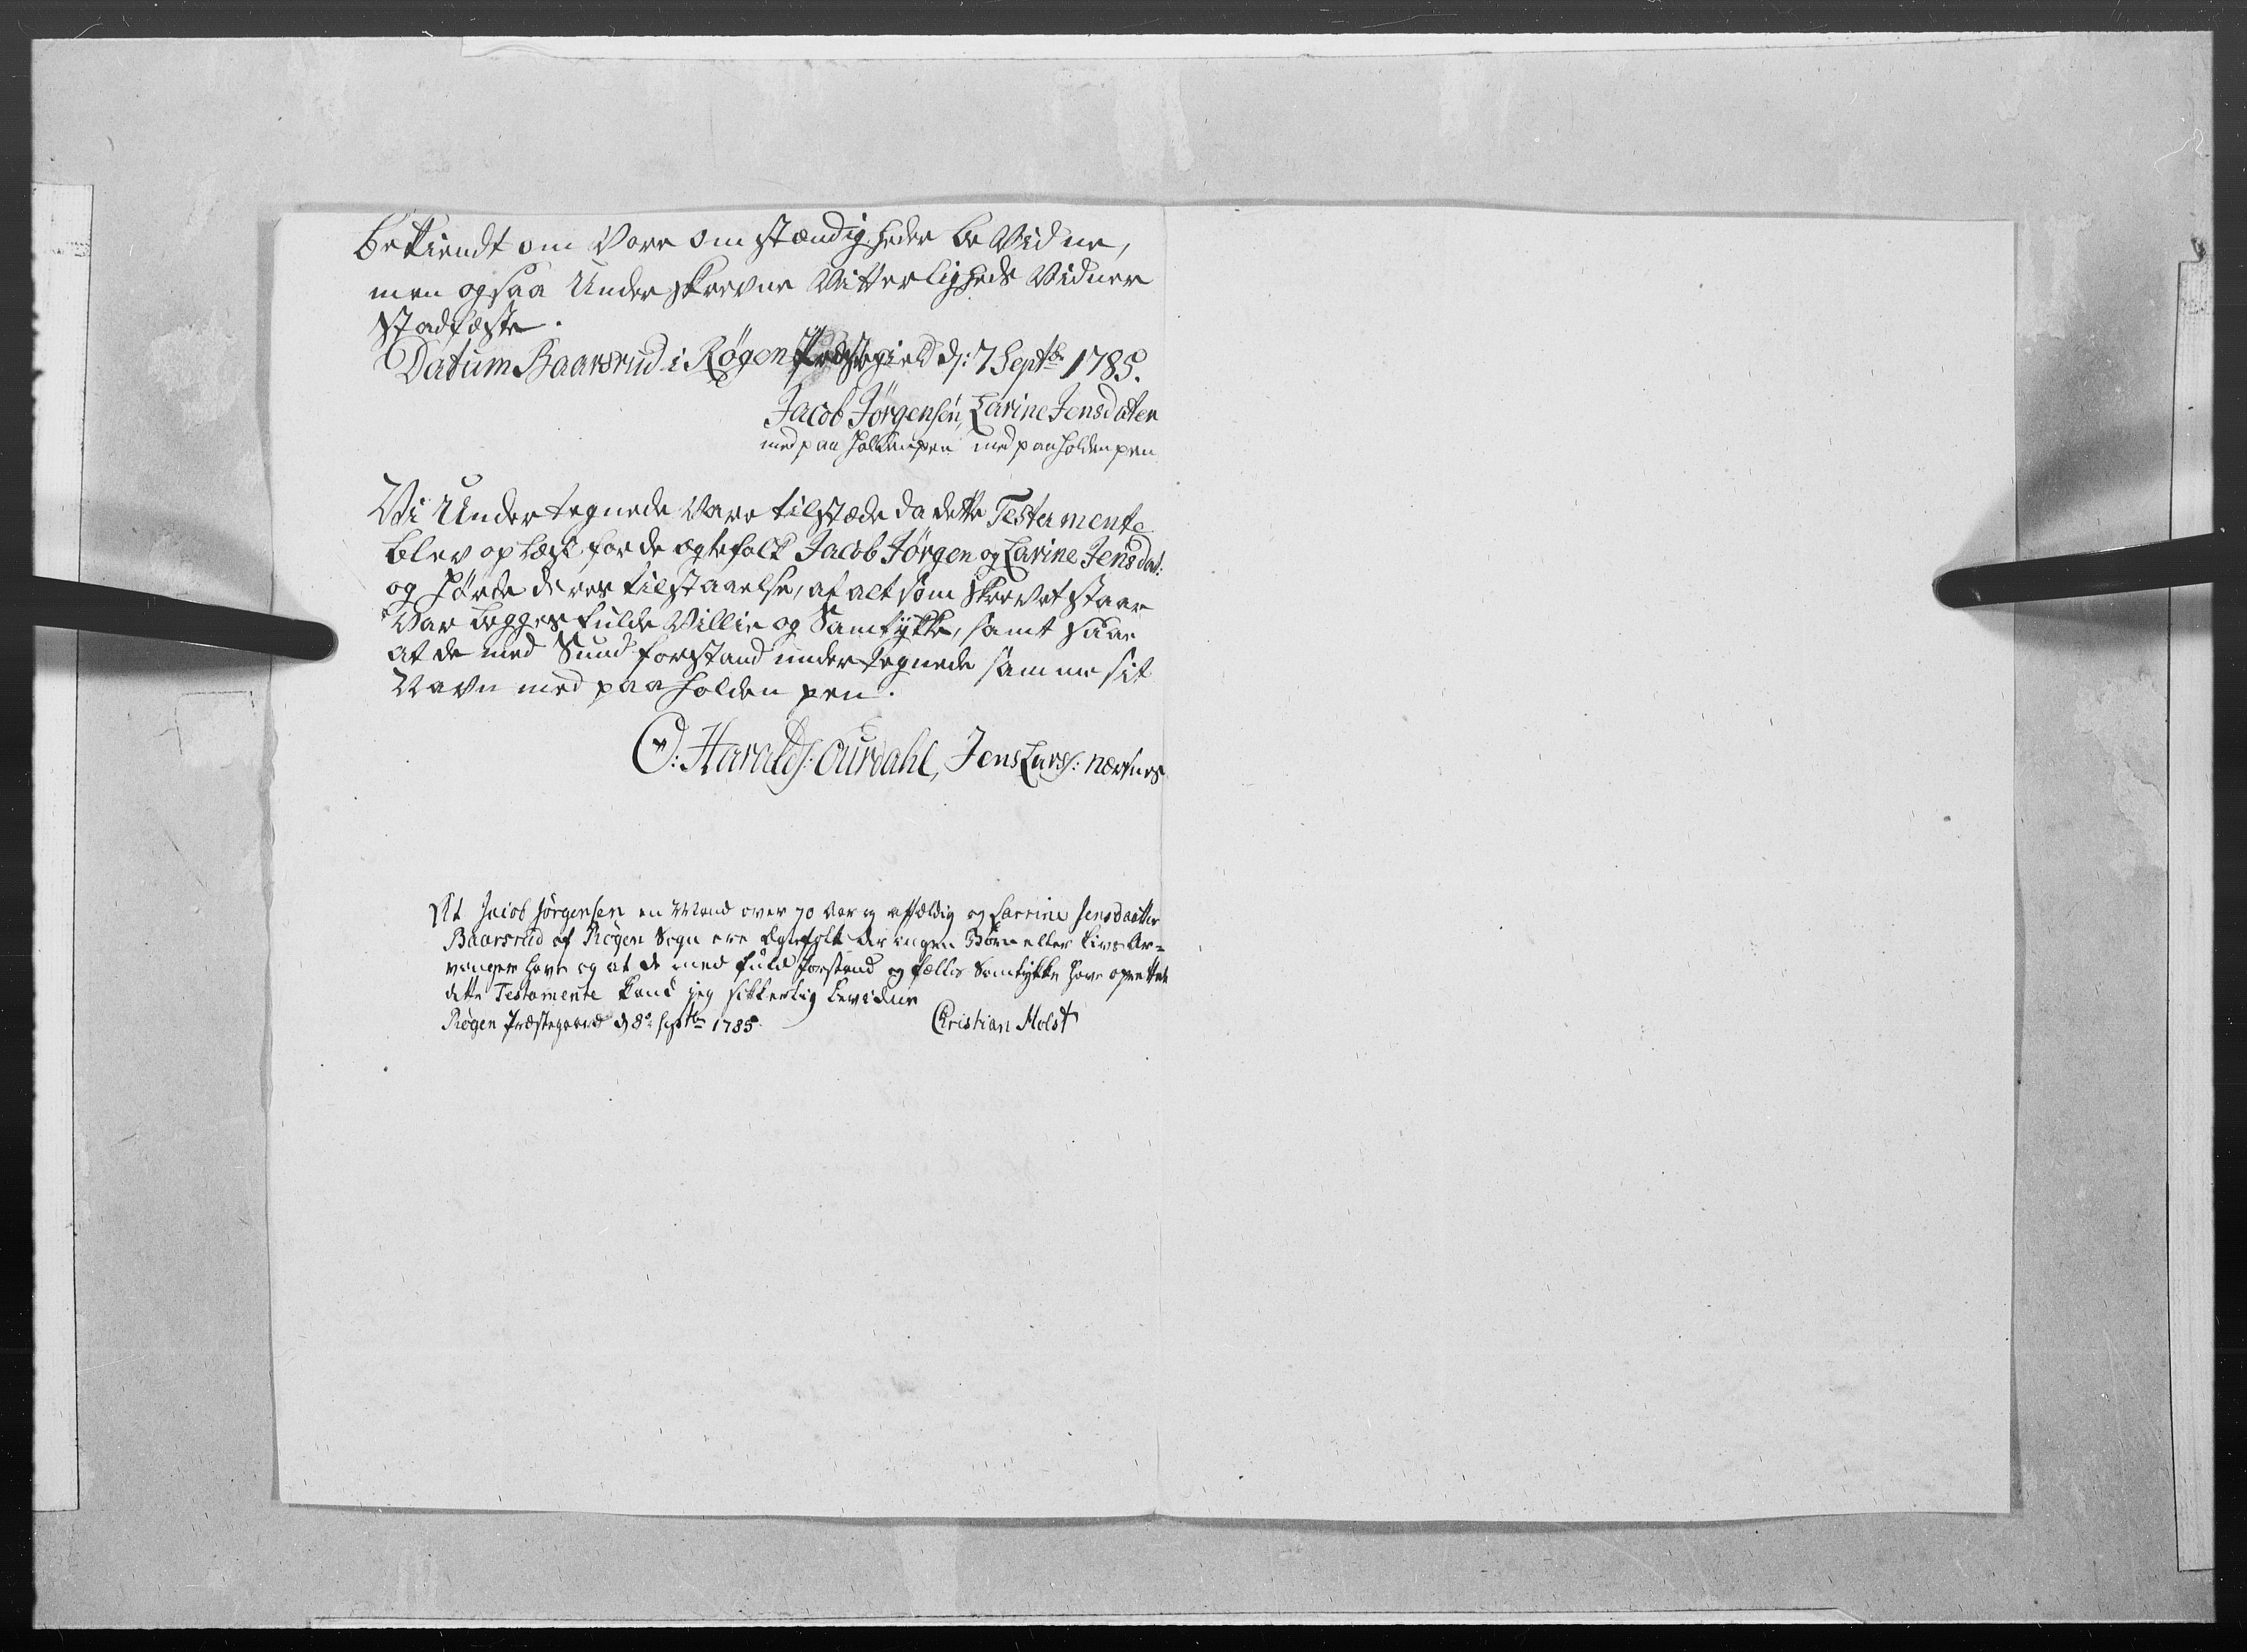 bekiendt om Vore omstændigheder be Vidne,
men ogsaa Underskrevne Vitterligheds Vidner
Stadfæste.
Datum Baarsrud i Røgen Præstegield d: 7 Septbr 1785.
Jacob Jörgensen, Larine Jensdaten
med paaholden pen med paaholden pen
Vi Undertegnede Vare tilstæde da dette Testermente
blev oplæst for de ægtefolk Jacob Jörgen og Larine Jensdat:
og hörde deres tilstaaelse, at alt som skrevet staar
Var begges fulde Villie og Samtykke, samt saae
at de med Sund forstand undertegnede samme sit
Navn med paaholden pen.
O: Haralds: Ourdahl, Jens Lars: nærsnes
At Jacob Jörgensen en Mand over 70 Aar og affældig og Larrine Jensdaatter
Baarsrud af Røgen Sogn ere Ægtefolk der ingen Börn eller Livs Ar=
vinger have og at de med fuld forstand og fælles Samtykke have oprettet
dette Testamente kand jeg sikkerlig bevidne
Røgen Præstegaard d 8de Septbr 1785.
Christian Holst